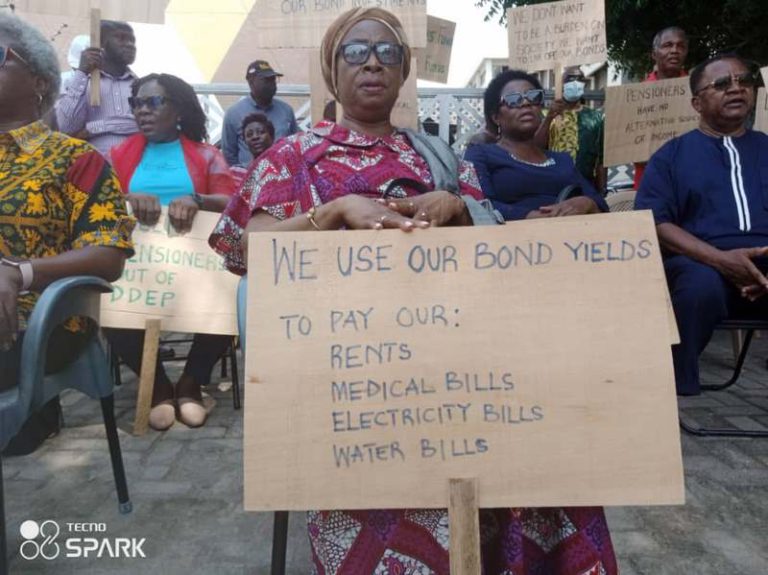 OUR BOND INVESTMENTS
WE DON'T WANT
TO BE A BURDEN ON
SOCIETY. WE WANT
BONDS
PENSIONERS
HAVE NO
ALTERNATIVE
OF INCOME
PENSIONERS
OUT OF
DDEP
WE USE OUR BOND YIELDS
TO PAY OUR:
RENTS
MEDICAL BILLS
ELECTRICITY BILLS
WATER BILLS
TECNO
SPARK